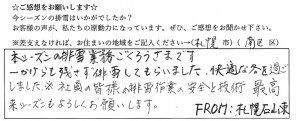 ☆ご感想をお願いします☆
今シーズンの排雪はいかがでしたか?
お客様の声が、私たちの原動力になっています。ぜひ、ご感想をお聞かせ下さい。
※差支えなければ、お住まいの地域をご記入ください…(札幌市)(南区)
来シーズンの排雪業務ごくろうさまです
一かけらも残さず排雪してもらいました、快適な冬を過ご
しました。※社員の皆様の排雪作業の安全と技術 最高
来シーズンもよろしくお願いします。
FROM:札幌石山東